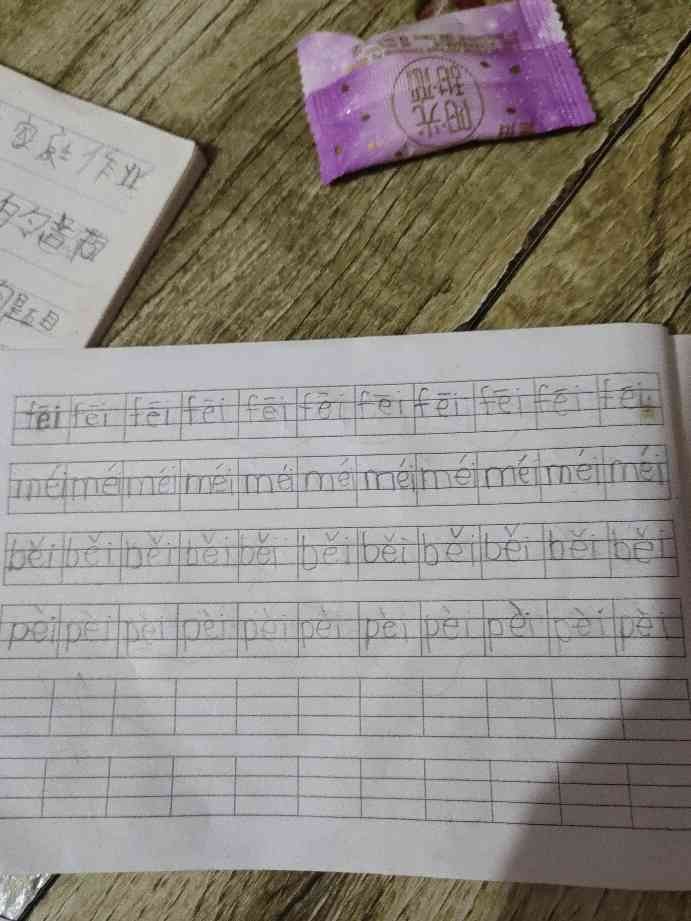 阳光
甜邵
家庭作业
fēi fēi fēi fēi fēi fēi fēi fēi fēi fēi fēi
méi méi méi méi méi méi méi méi méi méi méi
běi běi běi běi běi běi běi běi běi běi běi
pèi pèi pèi pèi pèi pèi pèi pèi pèi pèi pèi